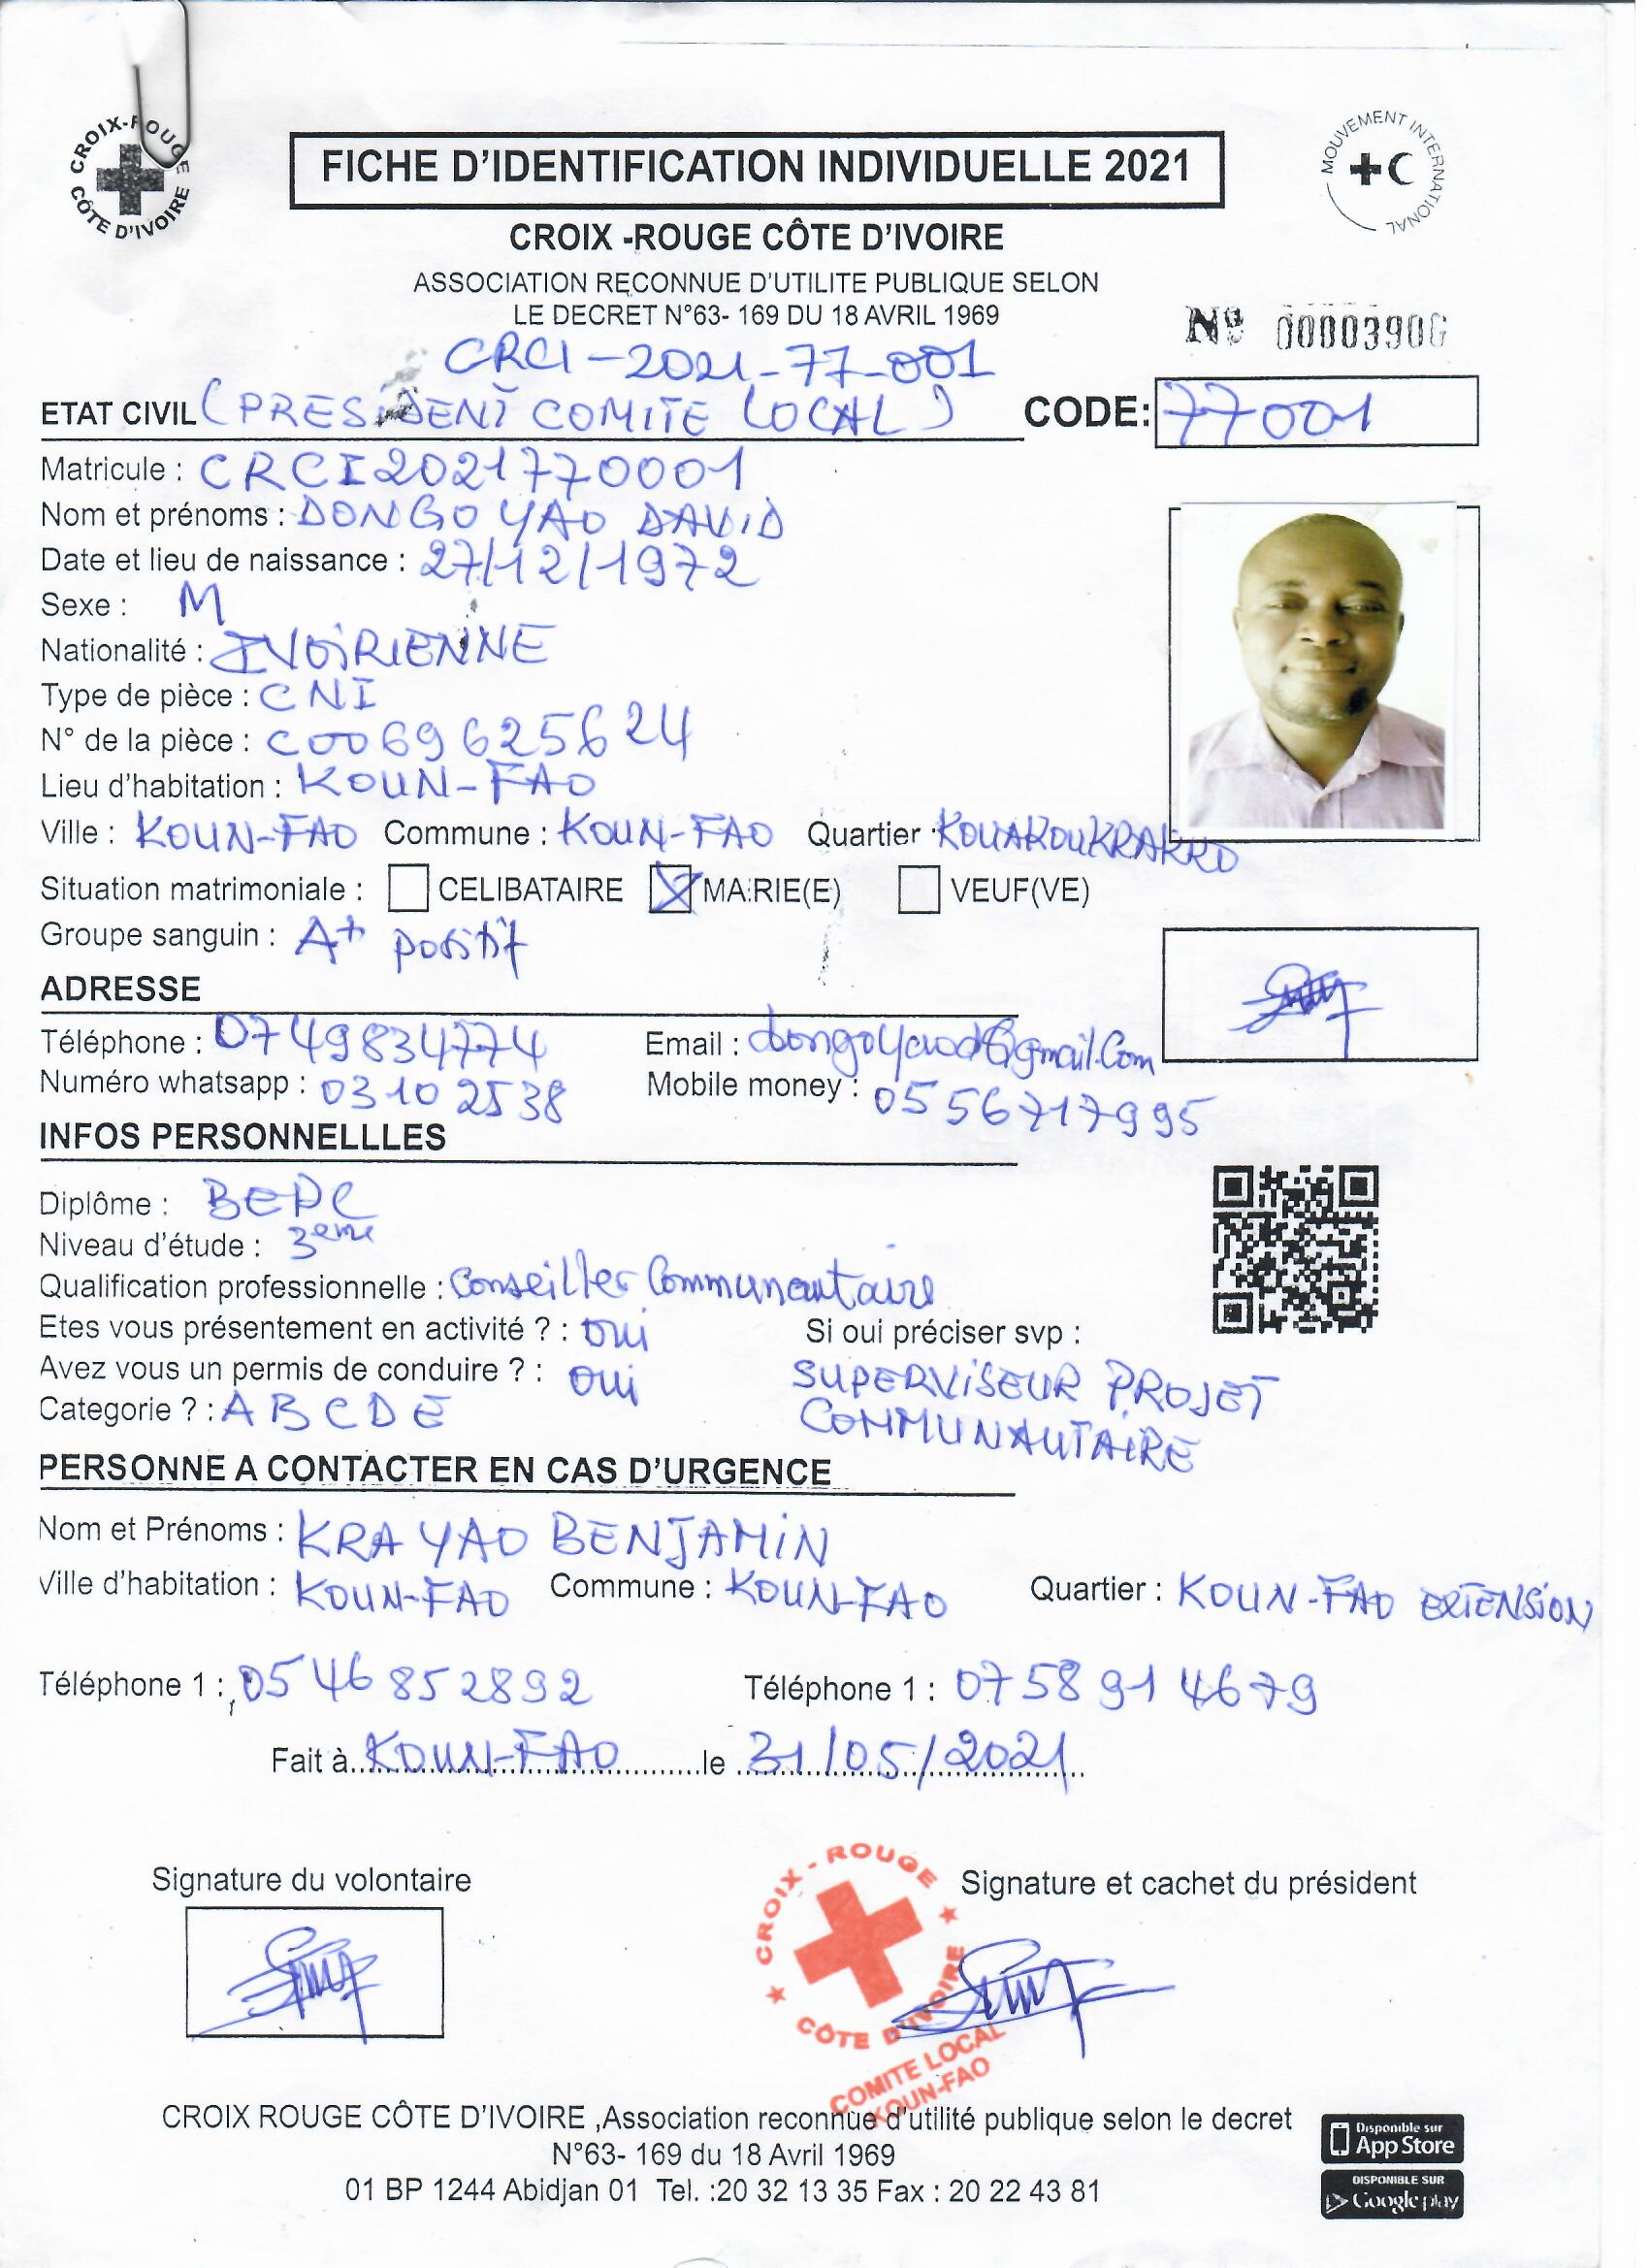 CROIX-ROUGE CÔTE D'IVOIRE
MOUVEMENT INTERNATIONAL
FICHE D'IDENTIFICATION INDIVIDUELLE 2021
CROIX -ROUGE CÔTE D'IVOIRE
ASSOCIATION REÇONNUE D'UTILITE PUBLIQUE SELON
LE DECRET N°63- 169 DU 18 AVRIL 1969
Nº 0000390
CRCI-2021-77-001
ETAT CIVIL (PRESIDENT COMITE LOCAL) CODE: 77001
Matricule : CRCI2021770001
Nom et prénoms : DONGO YAO DAVID
Date et lieu de naissance : 27/12/1972
Sexe : M
Nationalité : IVOIRIENNE
Type de pièce : CNI
N° de la pièce : C0069625624
Lieu d'habitation : KOUN-FAO
Ville : KOUN-FAO Commune : KOUN-FAO Quartier : KOUAKOUKRAKRO
Situation matrimoniale : CELIBATAIRE MARIE(E) VEUF(VE)
Groupe sanguin : A+ positif
ADRESSE
Téléphone : 0749834774 Email : dongoyaod@gmail.com
Numéro whatsapp : 03102538 Mobile money : 0556717995
INFOS PERSONNELLLES
Diplôme : BEPC
Niveau d'étude : 3eme
Qualification professionnelle : Conseiller Communautaire
Etes vous présentement en activité ? : oui Si oui préciser svp :
Avez vous un permis de conduire ? : oui SUPERVISEUR PROJET
Categorie ? : A B C D E COMMUNAUTAIRE
PERSONNE A CONTACTER EN CAS D'URGENCE
Nom et Prénoms : KRA YAO BENJAMIN
Ville d'habitation : KOUN-FAO Commune : KOUN-FAO Quartier : KOUN-FAO EXTENSION
Téléphone 1 : 0546852892 Téléphone 1 : 0758914679
Fait à KOUN-FAO le 31/05/2021
Signature du volontaire Signature et cachet du président
CROIX-ROUGE CÔTE D'IVOIRE
COMITE LOCAL
KOUN-FAO
CROIX ROUGE CÔTE D'IVOIRE ,Association reconnue d'utilité publique selon le decret
N°63- 169 du 18 Avril 1969
01 BP 1244 Abidjan 01 Tel. :20 32 13 35 Fax : 20 22 43 81
Disponible sur
App Store
DISPONIBLE SUR
Google play